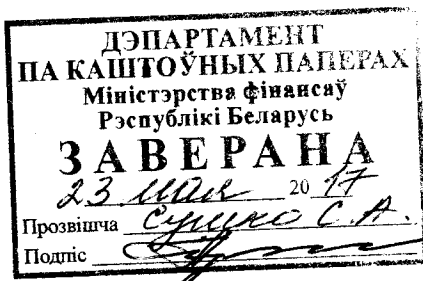 ДЭПАРТАМЕНТ
ПА КАШТОЎНЫХ ПАПЕРАХ
Міністэрства фінансаў
Рэспублікі Беларусь
ЗАВЕРАНА
23 мая 2017
Прозвішча Сушко С.А.
Подпіс